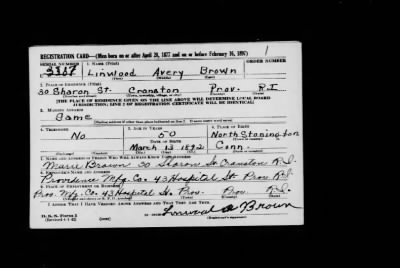 1
REGISTRATION CARD—(Men born on or after April 28, 1877 and on or before February 16, 1897)
SERIAL NUMBER 1. NAME (Print) ORDER NUMBER
3367 Linwood Avery Brown
(First) (Middle) (Last)
2. PLACE OF RESIDENCE (Print)
30 Sharon St. Cranston Prov. R.I
[THE PLACE OF RESIDENCE GIVEN ON THE LINE ABOVE WILL DETERMINE LOCAL BOARD
JURISDICTION; LINE 2 OF REGISTRATION CERTIFICATE WILL BE IDENTICAL]
3. MAILING ADDRESS
Same
4. TELEPHONE 5. AGE IN YEARS 6. PLACE OF BIRTH
No 50 North Stonington
DATE OF BIRTH
March 13 1892 Conn.
7. NAME AND ADDRESS OF PERSON WHO WILL ALWAYS KNOW YOUR ADDRESS
Brown 30 Sharon St Cranston R.I.
8. EMPLOYER'S NAME AND ADDRESS
Providence Mfg. Co. 43 Hospital St Prov. R.I.
9. PLACE OF EMPLOYMENT OR BUSINESS
Prov. Mfg. Co. 43 Hospital St. Prov. Prov. R.I.
I AFFIRM THAT I HAVE VERIFIED ABOVE ANSWERS AND THAT THEY ARE TRUE.
D. S. S. Form 1
Linwood A Brown